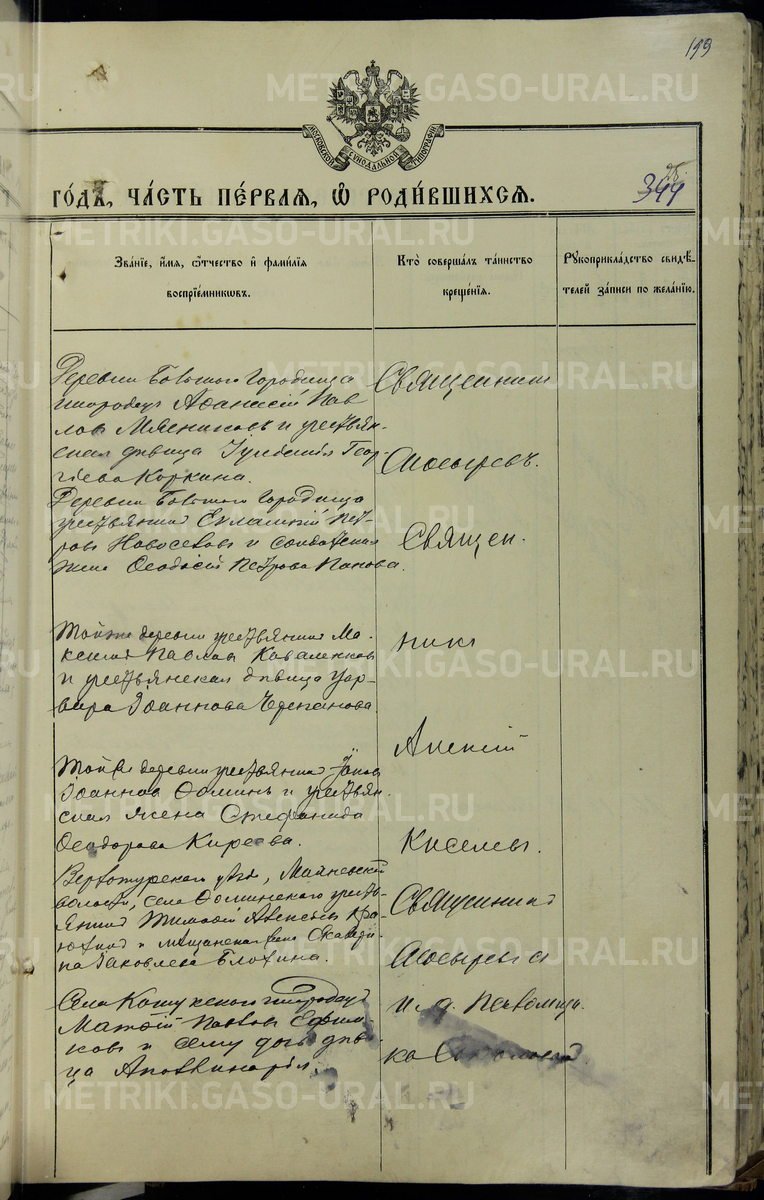 199
МОСКОВСКОЙ СѴНОДАЛЬНОЙ ТИПОГРАФІИ
ГО́ДА, ЧА́СТЬ ПЕ́РВАЯ, Ѽ РОДИ́ВШИХСЯ.
344
Зва́ніе, и́мя, ѻ҆́тчество и҆ фами́лія
воспріе́мникωвъ.
Кто̀ соверша́лъ та́инство
креще́нія.
Рꙋкоприкла́дство свидѣ́-
телей за́писи по жела́нію.
Деревни Большого Городища
инородец Афанасій Пав
лов Мясников и крестьян-
ская дѣвица Геор-
гіева Коркина.
Священник
Мосыревъ.
Деревни Большого Городища
крестьянин Евлампій Пет-
ров Новоселов и солдатская
жена Феодосія Петрова Панова.
Священ.
Тойже деревни крестьянин Ма-
ксим Павлов Коваленков
и крестьянская дѣвица Вар-
вара Іоаннова Черепанова
ник
Тойже деревни крестьянин Яков
Іоаннов Фоминъ и крестьян-
ская жена Стефанида
Феодорова Киреева.
Алексій
Киселев.
Верхотурского уѣзд, Махневской
волости, села Фоминского кресть-
янин Тимофей Алексѣев
и мещанская
на Іаковлева Блохина.
Священник
Мосырев и
Села Кошукского инородец
Матфій Павлов
ков и сему дочь дѣви-
ца Аполлинарія.
и. д. Псаломщи.
ка
METRIKI.GASO-URAL.RU